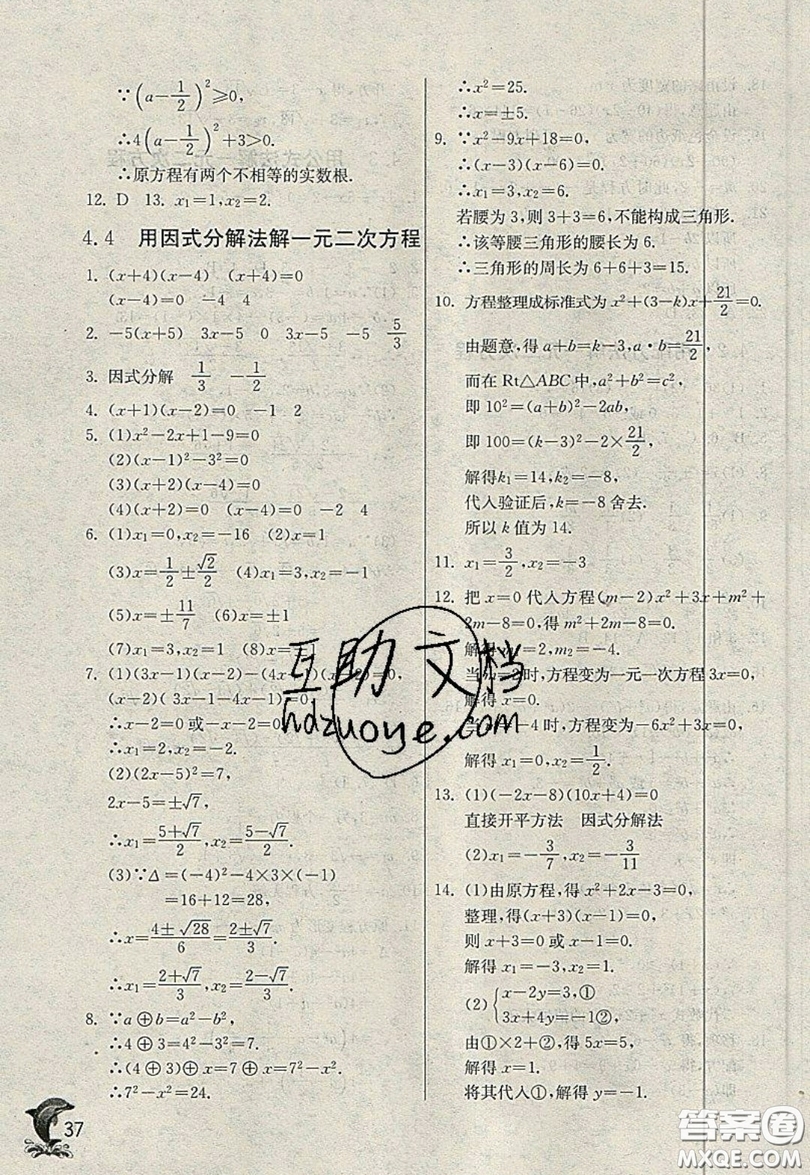 ∵(a-1/2)²≥0,
∴4(a-1/2)²+3>0.
∴原方程有两个不相等的实数根.
12. D 13. x₁=1,x₂=2.
4.4 用因式分解法解一元二次方程
1. (x+4)(x-4) (x+4)=0
(x-4)=0 -4 4
2. -5(x+5) 3x-5 0 3x-5 -5 5/3
3. 因式分解 1/3 -1/2
4. (x+1)(x-2)=0 -1 2
5. (1)x²-2x+1-9=0
(2)(x-1)²-3²=0
(3)(x+2)(x-4)=0
(4)(x+2)=0 (x-4)=0 -2 4
6. (1)x₁=0,x₂=-16 (2)x=1
(3)x=1/2±√2/2 (4)x₁=3,x₂=9
(5)x=±11/7 (6)x=±1
(7)x₁=3,x₂=1 (8)x=1
7. (1)(3x-1)(x-2)-(4x )(x-2)=0,
(x-2)( 3x-1-4x-1)=0
∴x-2=0或-x-2=0.
∴x₁=2,x₂=-2.
(2)(2x-5)²=7,
2x-5=±√7,
∴x₁=(5+√7)/2,x₂=(5-√7)/2.
(3)∵Δ=(-4)²-4×3×(-1)
=16+12=28,
∴x=(4±√28)/6=(2±√7)/3.
∴x₁=(2+√7)/3,x₂=(2-√7)/3.
8. ∵a⊕b=a²-b²,
∴4⊕3=4²-3²=7.
∴(4⊕3)⊕x=7⊕x=7²-x².
∴7²-x²=24.
37
∴x²=25.
∴x=±5.
9. ∵x²-9x+18=0,
∴(x-3)(x-6)=0.
∴x₁=3,x₂=6.
若腰为3,则3+3=6,不能构成三角形.
∴该等腰三角形的腰长为6.
∴三角形的周长为6+6+3=15.
10. 方程整理成标准式为x²+(3-k)x+21/2=0.
由题意,得a+b=k-3,a·b=21/2,
而在Rt△ABC中,a²+b²=c²,
即10²=(a+b)²-2ab,
即100=(k-3)²-2×21/2,
解得k₁=14,k₂=-8,
代入验证后,k=-8舍去.
所以k值为14.
11. x₁=3/2,x₂=-3
12. 把x=0代入方程(m-2)x²+3x+m²+
2m-8=0,得m²+2m-8=0.
解得m₁=2,m₂=-4.
当m=2时,方程变为一元一次方程3x=0,
解得x=0.
当 -4时,方程变为-6x²+3x=0,
解得x₁=0,x₂=1/2.
13. (1)(-2x-8)(10x+4)=0
直接开平方法 因式分解法
(2)x₁=-3/7,x₂=-3/11
14. (1)由原方程,得x²+2x-3=0,
整理,得(x+3)(x-1)=0,
则x+3=0或x-1=0.
解得x₁=-3,x₂=1.
(2){x-2y=3,①
3x+4y=-1②,
由①×2+②,得5x=5,
解得x=1.
将其代人①,解得y=-1.
互助文档
hdzuoye.com
答案圈
MXQE.COM